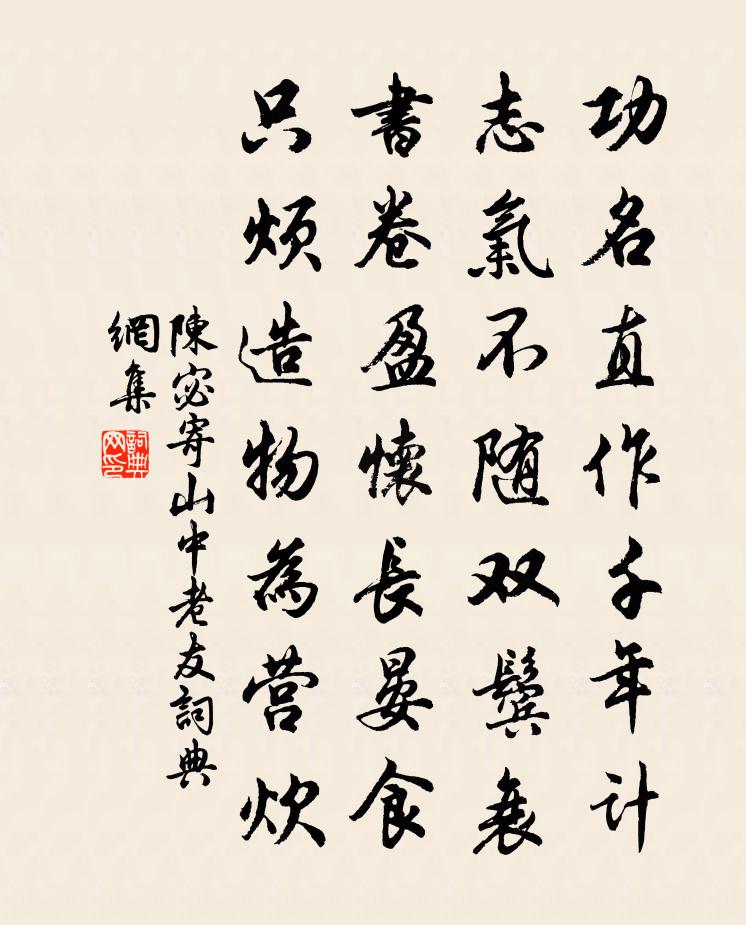 功名直作千年计
志氣不随双鬓衰
書卷盈懷長晏食
只烦造物為营炊
陳宓寄山中老友詞典
網集
詞典網印